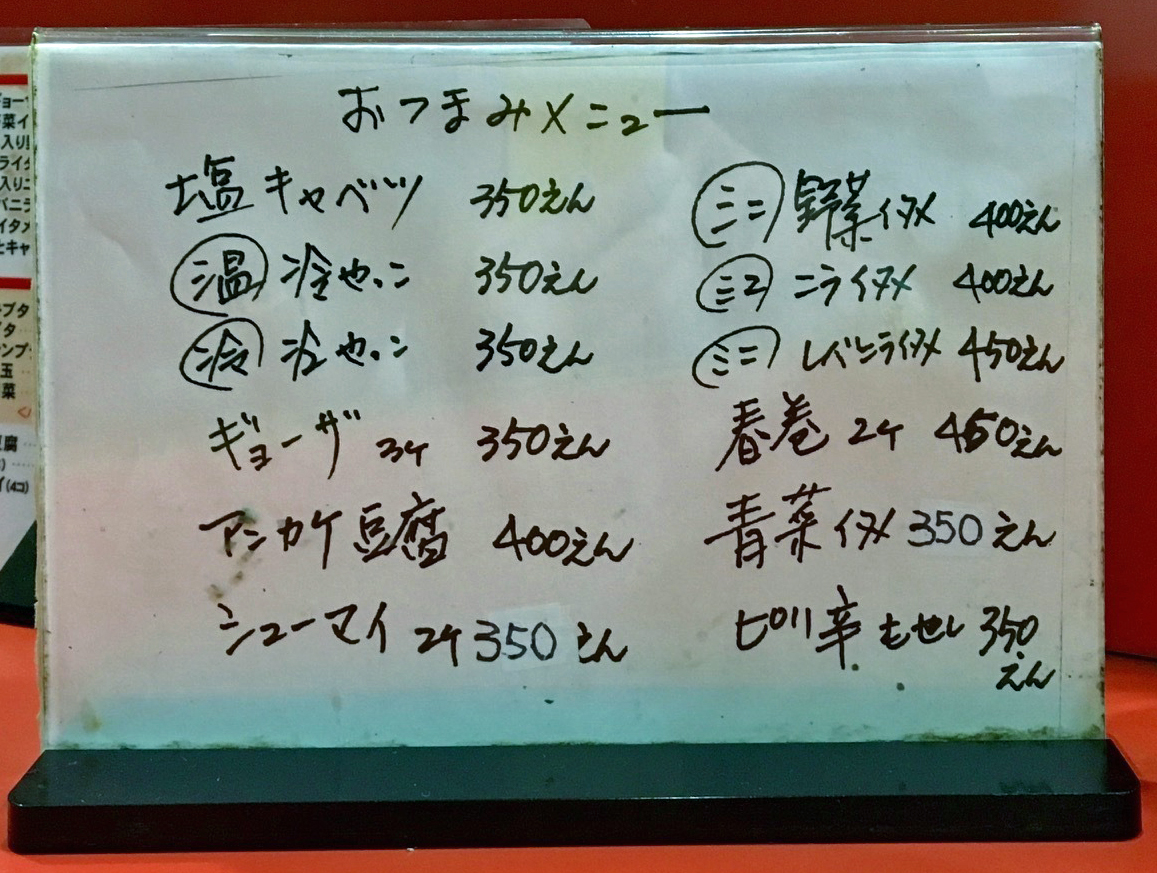 おつまみメニュー
塩キャベツ 350えん
温 冷やっこ 350えん
冷 冷やっこ 350えん
ギョーザ 3ケ 350えん
アンカケ豆腐 400えん
シューマイ 2ケ 350えん
ミニ 野菜イタメ 400えん
ミニ ニライタメ 400えん
ミニ レバニライタメ 450えん
春巻 2ケ 450えん
青菜イタメ 350えん
ピリ辛もやし 350
えん